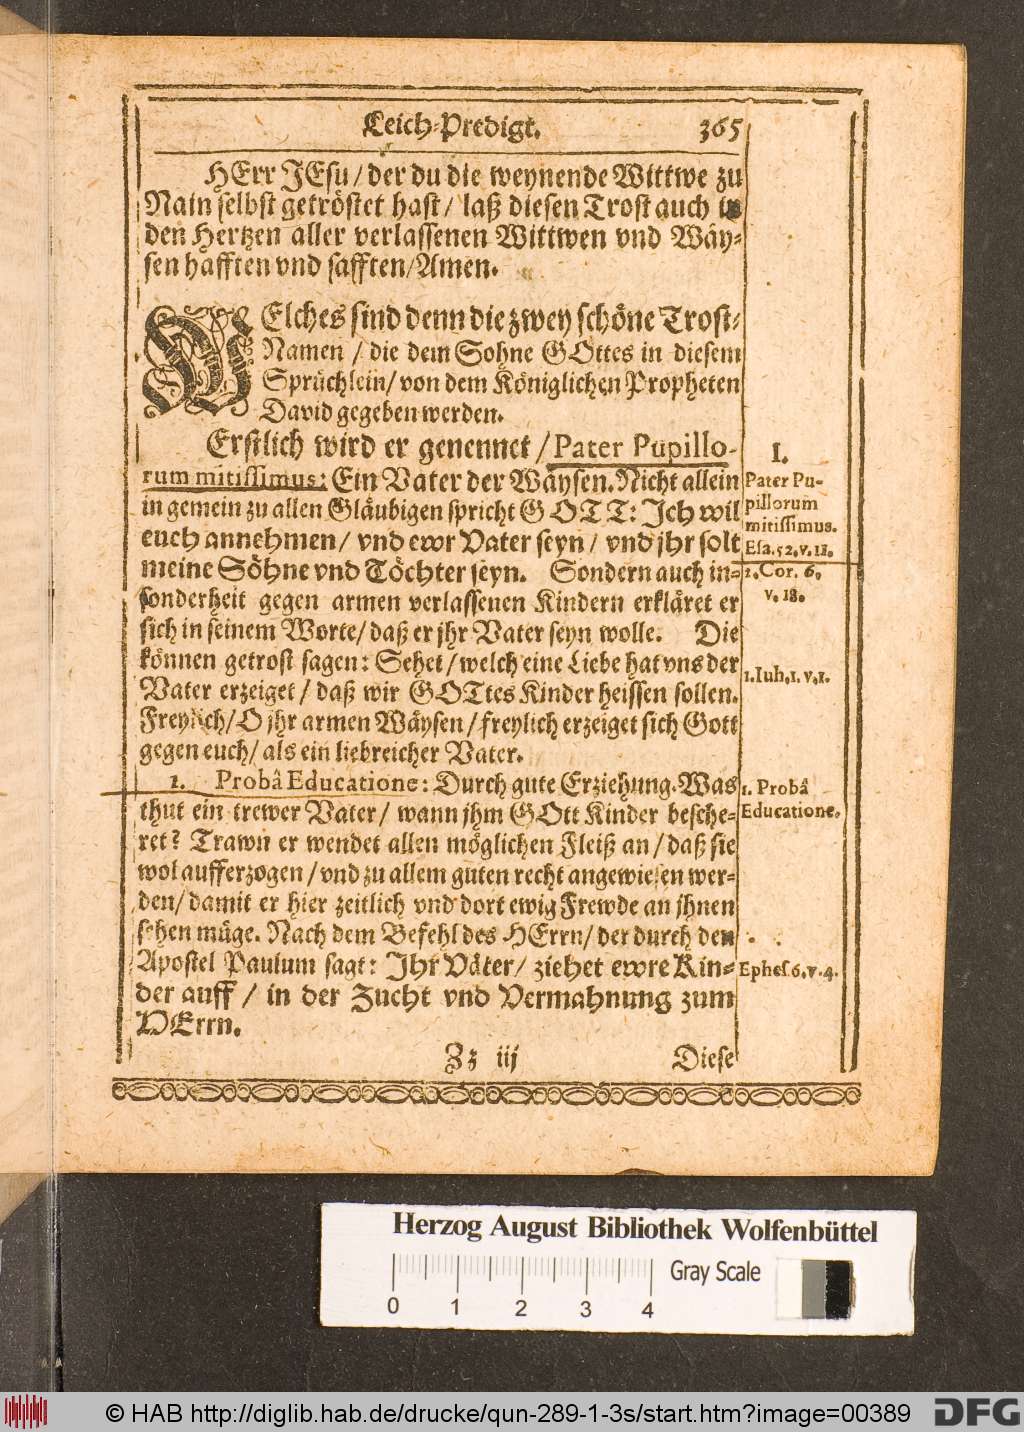 Leich-Predigt. 365
HErr JEsu / der du die weynende Wittwe zu
Nain selbst getröstet hast / laß diesen Trost auch in
den Hertzen aller verlassenen Wittwen vnd Wäy-
sen hafften vnd safften / Amen.
WElches sind denn die zwey schöne Trost-
Namen / die dem Sohne GOttes in diesem
Sprüchlein / von dem Königlichen Propheten
David gegeben werden.
Erstlich wird er genennet / Pater Pupillo-
rum mitissimus: Ein Vater der Wäysen. Nicht allein
in gemein zu allen Gläubigen spricht GOTT: Jch wil
euch annehmen / vnd ewr Vater seyn / vnd jhr solt
meine Söhne vnd Töchter seyn. Sondern auch in-
sonderheit gegen armen verlassenen Kindern erkläret er
sich in seinem Worte / daß er jhr Vater seyn wolle. Die
können getrost sagen: Sehet / welch eine Liebe hat vns der
Vater erzeiget / daß wir GOTtes Kinder heissen sollen.
Freylich / O jhr armen Wäysen / freylich erzeiget sich Gott
gegen euch / als ein liebreicher Vater.
1. Probâ Educatione: Durch gute Erziehung. Was
thut ein trewer Vater / wann jhm GOtt Kinder besche-
ret? Trawn er wendet allen möglichen Fleiß an / daß sie
wol aufferzogen / vnd zu allem guten recht angewiesen wer-
den / damit er hier zeitlich vnd dort ewig Frewde an jhnen
sehen müge. Nach dem Befehl des HErrn / der durch den
Apostel Paulum sagt: Jhr Väter / ziehet ewre Kin-
der auff / in der Zucht vnd Vermahnung zum
HErrn.
Zz iij Diese
I.
Pater Pu-
pillorum
mitissimus.
Esa. 52. v. 11.
2. Cor. 6.
v. 18.
1. Iuh. 1. v. 1.
1. Probâ
Educatione.
Ephes. 6. v. 4.
Herzog August Bibliothek Wolfenbüttel
Gray Scale
0 1 2 3 4
© HAB http://diglib.hab.de/drucke/qun-289-1-3s/start.htm?image=00389
DFG